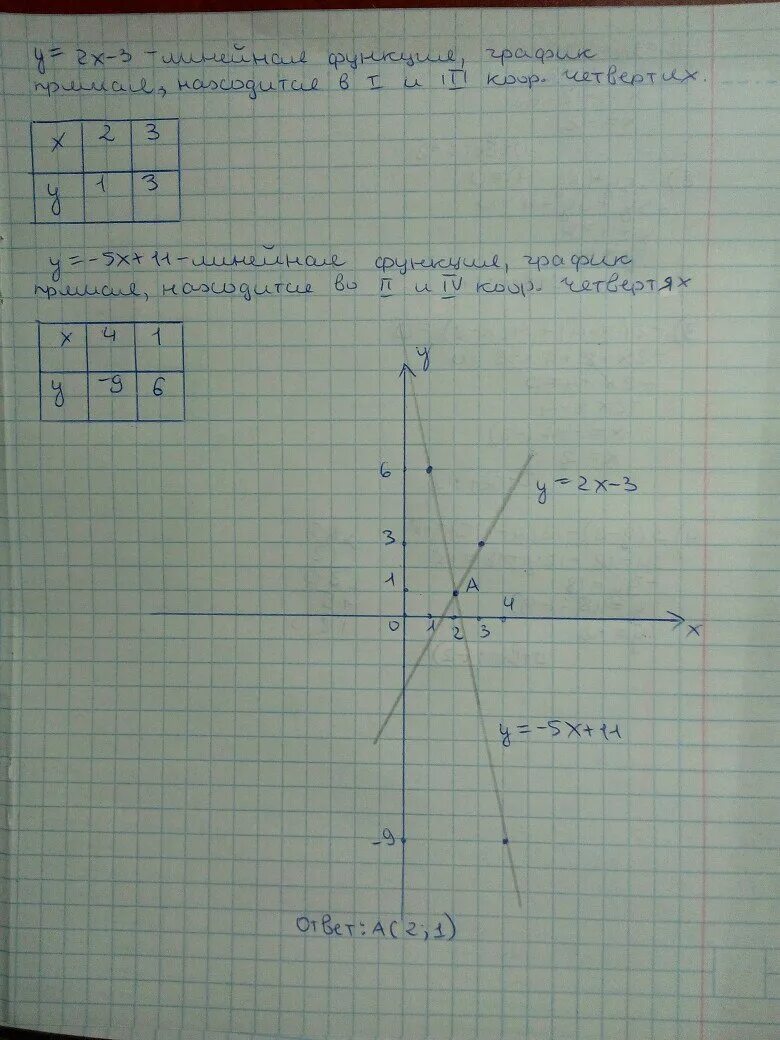 y = 2x-3 - линейная функция, график
прямая, находится в I и III коор. четвертях.
x 2 3
y 1 3
y = -5x+11 - линейная функция, график
прямая, находится во II и IV коор. четвертях
x 4 1
y -9 6
y
6
y = 2x-3
3
1
A
0 1 2 3 4
x
y = -5x+11
-9
Ответ: A(2;1)